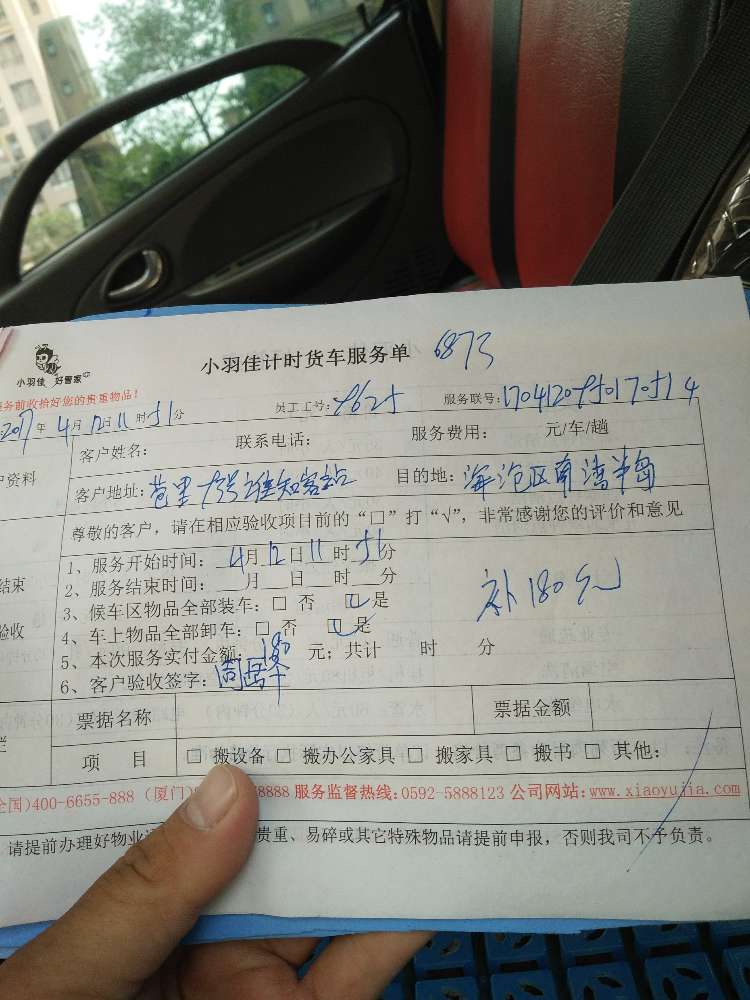 小羽佳 好管家
小羽佳计时货车服务单 6873
务前收拾好您的贵重物品!
2017年4月12日11时51分 员工工号: 服务联号:
客户姓名: 联系电话: 服务费用: 元/车/趟
户资料
客户地址: 目的地:海沧区南湾半岛
尊敬的客户，请在相应验收项目前的“□”打“√”，非常感谢您的评价和意见
1、服务开始时间：4月12日11时51分
结束
2、服务结束时间：__月__日__时__分
3、候车区物品全部装车：□ 否 是
补180元
验收
4、车上物品全部卸车：□ 否 是
5、本次服务实付金额：180元；共计 时 分
6、客户验收签字：
票据名称 票据金额
栏
项 目 □ 搬设备 □ 搬办公家具 □ 搬家具 □ 搬书 □ 其他：
全国)400-6655-888 (厦门) 8888 服务监督热线:0592-5888123 公司网站:www.xiaoyujia.com
请提前办理好物业 贵重、易碎或其它特殊物品请提前申报，否则我司不予负责。